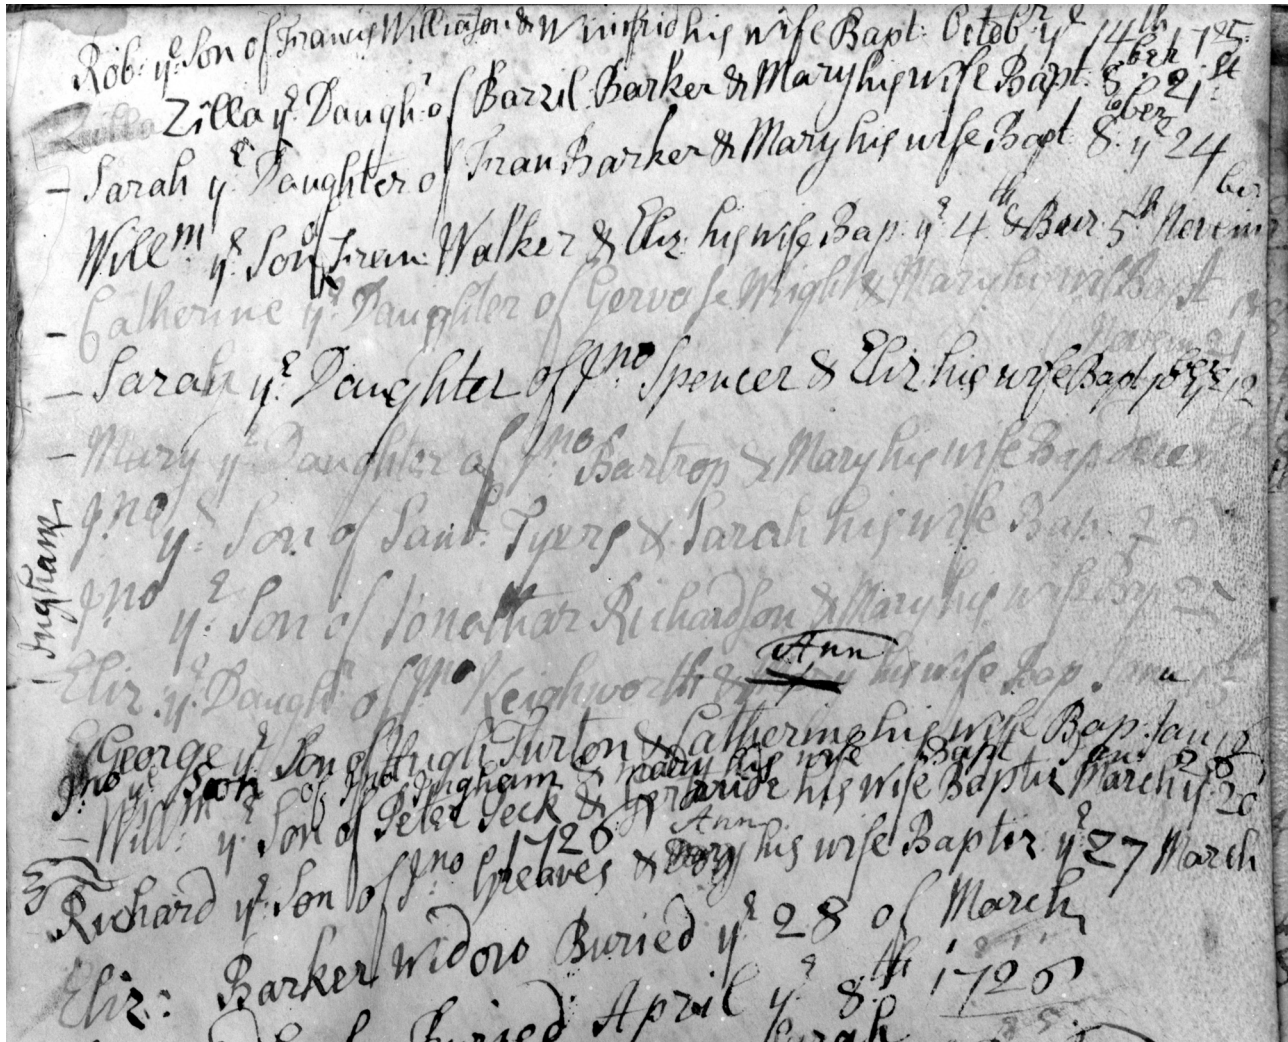 Rob: yͤ Son of Francis Williason & Winifrid his wife Bapt: Octobr yͤ 14th 1725
Zilla yͤ Daughr: of Barzil: Barker & Mary his wife Bapt. 8ber 21st
– Sarah yͤ Daughter of Fran Barker & Mary his wife Bapt 8ber yͤ 24
Willm yͤ Son of Fran: Walker & Eliz: his wife Bap: yͤ 4th & Bur: 5th Novembr
– Catherine yͤ Daughter of Gervase Wright & Mary his wife Bapt
Novem 21
– Sarah yͤ Daughter of Jno Spencer & Eliz his wife Bapt 10ber yͤ 12
– Mary yͤ Daughter of Jno Bartrop & Mary his wife Bap
Jno yͤ Son of Sam: Tyers & Sarah his wife Bap:
Ingham
Jno yͤ Son of Jonathan Richardson & Mary his wife Bap 27
Ann
Eliz: yͤ Daughr of Jno Keighworth & his wife Bap Janu
George yͤ Son of Hugh Turton & Catherine his wife Bap: Jan 12
Jno yͤ Son of Jno Ingham & Mary his wife Bapt Jan: 28
– Willm: yͤ Son of Peter Peck & his wife Baptiz March yͤ 20
1726 Ann
Richard yͤ Son of Jno Greaves & his wife Baptiz yͤ 27 March
Eliz: Barker Widow Buried yͤ 28 of March
Buried April yͤ 8th 1726
Sarah